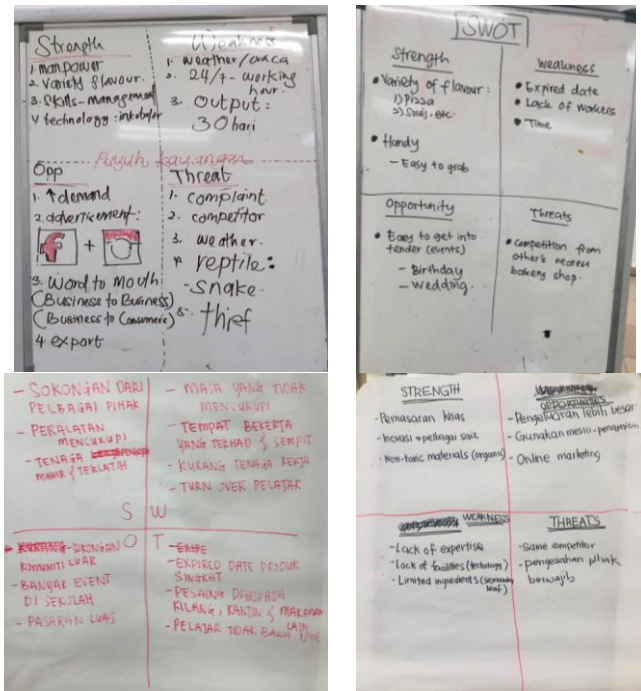 Strength
1. manpower
2. Variety flavour.
3. Skills-management
4 technology: inkubator
Weakness
1. weather/cuaca
2. 24/7- working
hour.
3. output:
30 hari
Puyuh Kayangan
Opp
1. ↑ demand
2. advertisement:
f +
3. Word to Mouth
(Business to Business)
(Business to Consumers)
4 export
Threat
1. complaint
2. competitor
3. weather.
4. reptile:
-snake.
5. thief
SWOT
Strength
• Variety of flavour:
1) Pizza
2) Snij. etc
• Handy
- Easy to grab
Weakness
• Expired date
• Lack of workers
• Time
Opportunity
• Easy to get into
tender (events)
- Birthday
- Wedding
Threats
• Competition from
other's nearest
bakery shop.
- SOKONGAN DARI
PELBAGAI PIHAK
- PERALATAN
MENCUKUPI
- TENAGA
MAHIR & TERLATIH
S
- MASA YANG TIDAK
MENCUKUPI
- TEMPAT BEKERJA
YANG TERHAD & SEMPIT
- KURANG TENAGA KERJA
- TURN OVER PELAJAR
W
O
SOKONGAN
KOMUNITI LUAR
- BANYAK EVENT
DI SEKOLAH
- PASARAN LUAS
T
- EXPIRED DATE PRODUK
SINGKAT
- PESAING DARIPADA
KILANG, KANTIN & MAKANAN
LAIN
- PELAJAR TIDAK BAWA
STRENGTH
- Pemasaran khas
- Inovasi → pelbagai saiz
- Non-toxic materials (organic)
OPPORTUNITIES
- Pengeluaran lebih besar
- Gunakan mesin
- Online marketing
WEAKNESS
- Lack of expertise
- Lack of facilities (technology)
- Limited ingredients
THREATS
- Same competitor
- pengesahan pihak
berwajib